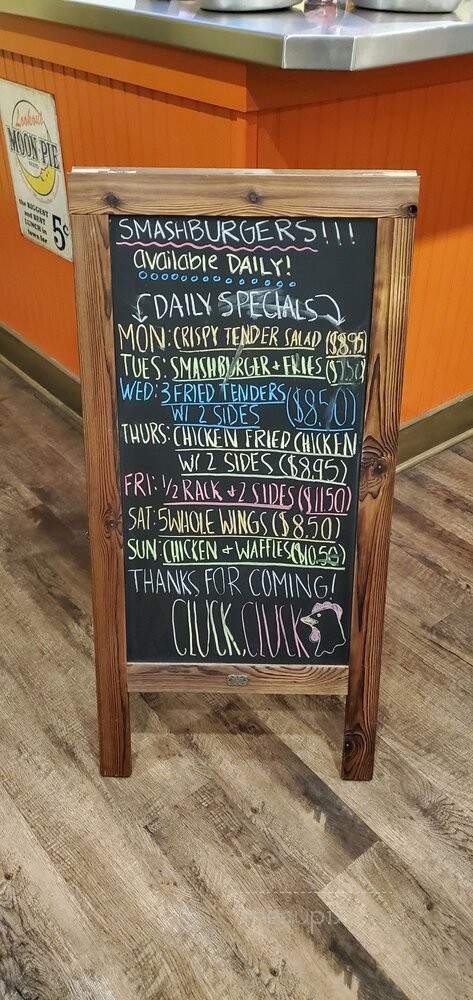 Lookout
MOON PIE
the BIGGEST
and BEST
LUNCH in
town for
5¢
SMASHBURGERS!!!
available DAILY!
DAILY SPECIALS
MON: CRISPY TENDER SALAD ($8.95)
TUES: SMASHBURGER + FRIES ($7.50)
WED: 3 FRIED TENDERS
W/ 2 SIDES ($8.50)
THURS: CHICKEN FRIED CHICKEN
W/ 2 SIDES ($8.95)
FRI: 1/2 RACK + 2 SIDES ($11.50)
SAT: 5 WHOLE WINGS ($8.50)
SUN: CHICKEN + WAFFLES ($10.50)
THANKS FOR COMING!
CLUCK, CLUCK
menupix